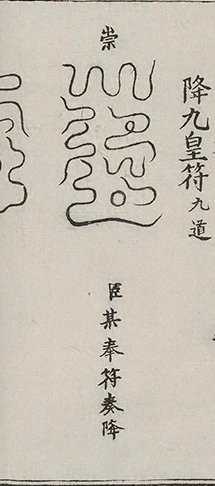 降九皇符九道
崇
臣某奉符奏降